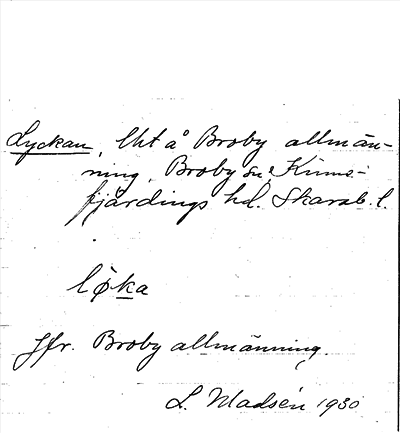 Lyckan, lht å Broby allmän-
ning, Broby sn, Kinne-
fjärdings hd. Skarab. l.
løka
Jfr. Broby allmänning.
L. Madsén 1930